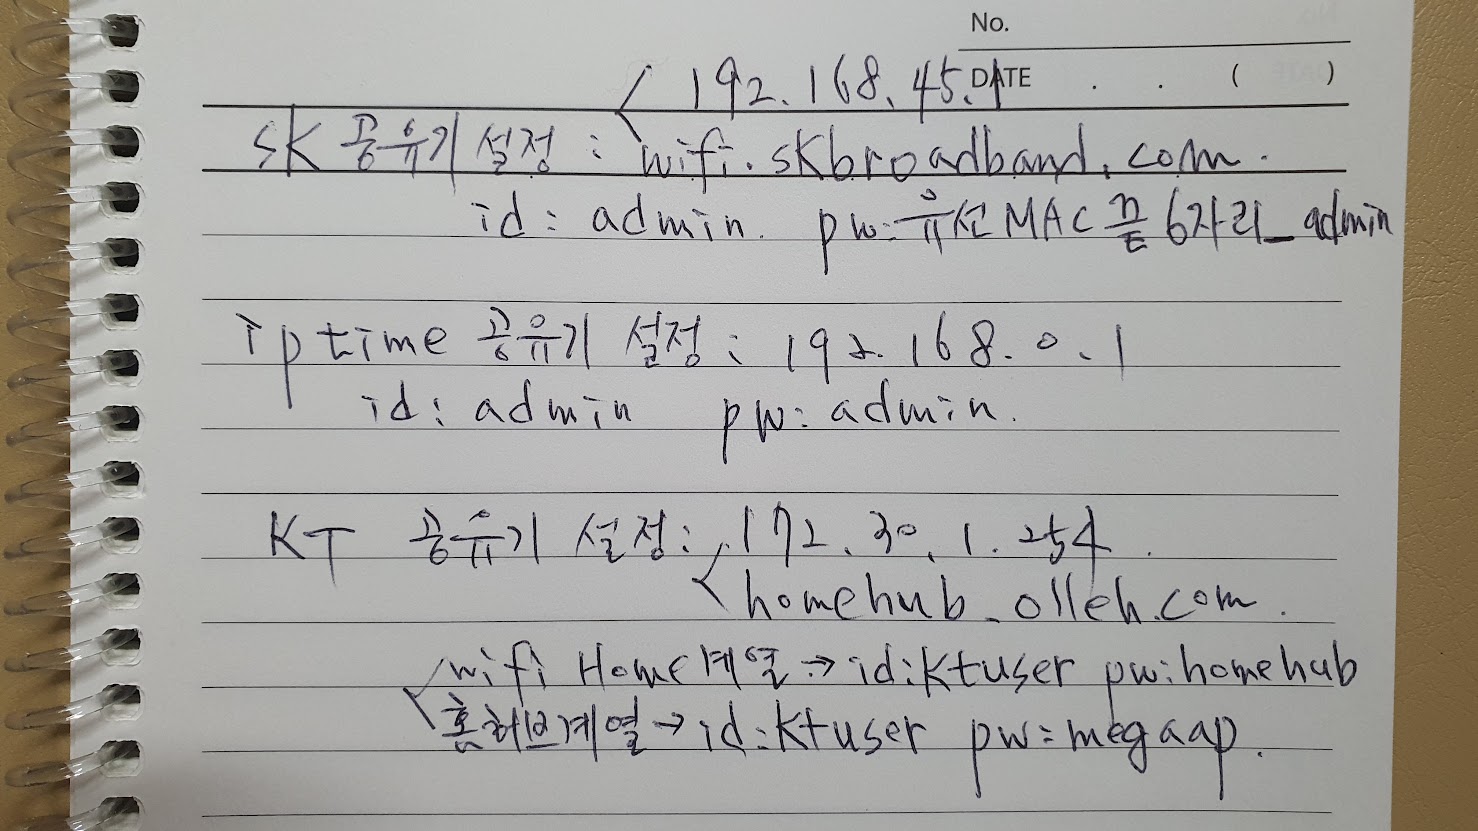 No.
DATE . . ( )
192.168.45.1
SK 공유기 설정 : wifi.skbroadband.com.
id: admin. pw: 유선MAC 끝 6자리_admin
iptime 공유기 설정 : 192.168.0.1
id: admin pw: admin.
KT 공유기 설정: 172.30.1.254.
homehub.olleh.com.
wifi Home계열 → id:ktuser pw:homehub
홈허브계열 → id:ktuser pw:megaap.